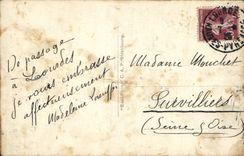 De passage
à Lourdes
je vous embrasse
affectueusement
Madeleine
Madame Mouchet
Survilliers
(Seine & Oise)